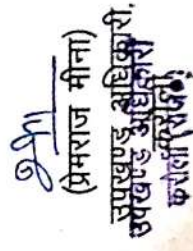 (प्रेमराज मीना)
उपखण्ड अधिकारी,
उपखण्ड अधिकारी
करौली